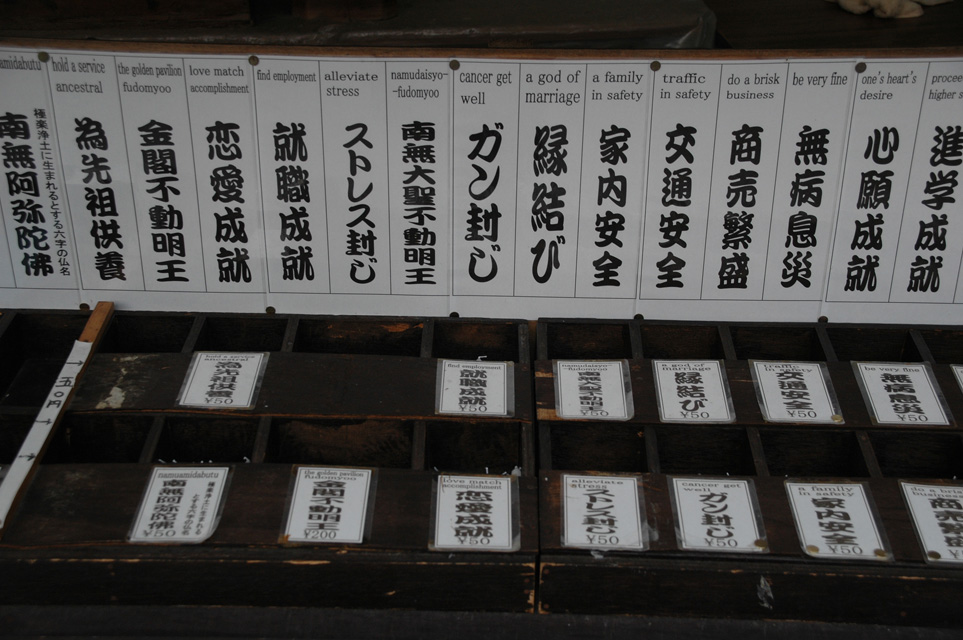 amidabutu
極楽浄土に生まれるとする六字の仏名
南無阿弥陀佛
hold a service
ancestral
為先祖供養
the golden pavilion
fudomyoo
金閣不動明王
love match
accomplishment
恋愛成就
find employment
就職成就
alleviate
stress
ストレス封じ
namudaisyo-
-fudomyoo
南無大聖不動明王
cancer get
well
ガン封じ
a god of
marriage
縁結び
a family
in safety
家内安全
traffic
in safety
交通安全
do a brisk
business
商売繁盛
be very fine
無病息災
one's heart's
desire
心願成就
procee
higher s
進学成就
hold a service
ancestral
為先祖供養
¥50
find employment
就職成就
¥50
namudaisyo-
-fudomyoo
南無大聖不動明王
¥50
a god of
marriage
縁結び
¥50
traffic
in safety
交通安全
¥50
be very fine
無病息災
¥50
←五〇円→
namuamidabutu
極楽浄土に生まれる
とする六字の仏名
南無阿弥陀佛
¥50
the golden pavilion
fudomyoo
金閣不動明王
¥200
love match
accomplishment
恋愛成就
¥50
alleviate
stress
ストレス封じ
¥50
cancer get
well
ガン封じ
¥50
a family
in safety
家内安全
¥50
do a bris
business
商売繁盛
¥50